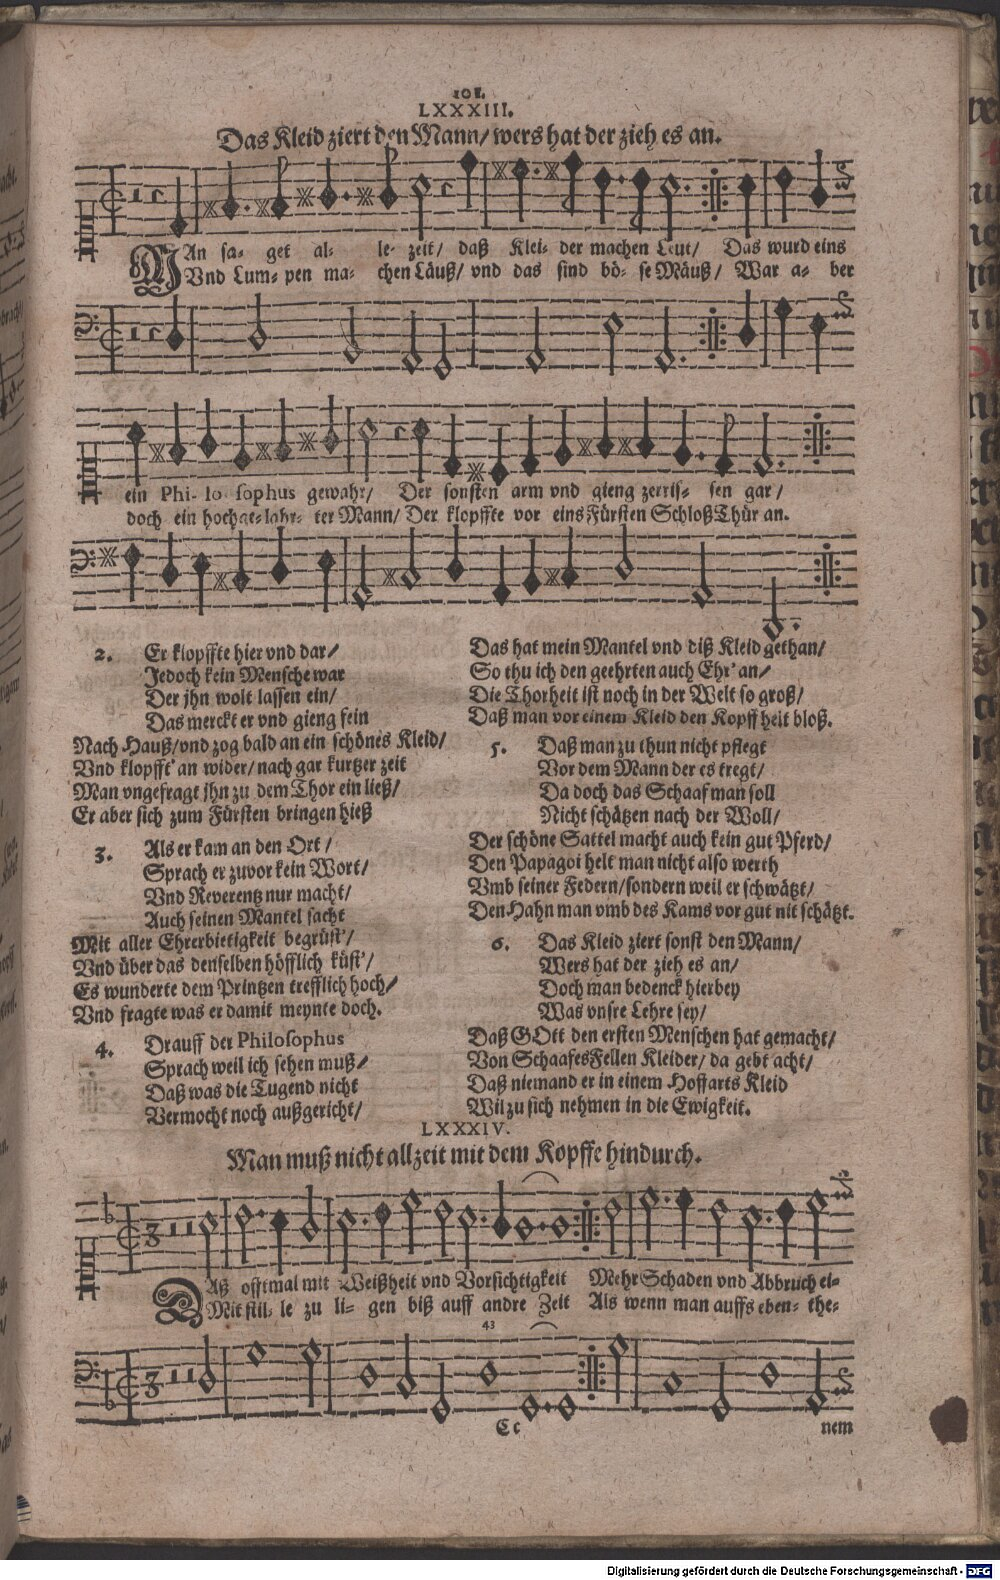 101.
LXXXIII.
Das Kleid ziert den Mann/ wers hat der zieh es an.
MAn sa- get al- le- zeit/ daß Klei- der machen Leut/ Das wurd eins
Vnd Lum- pen ma- chen Läuß/ vnd das sind bö- se Mäuß/ War a- ber
ein Phi- lo sophus gewahr/ Der sonsten arm vnd gieng zerris- sen gar/
doch ein hochge-lahr- ter Mann/ Der klopffte vor eins Fürsten Schloß Thür an.
2. Er klopffte hier vnd dar/
Jedoch kein Mensche war
Der jhn wolt lassen ein/
Das merckt er vnd gieng fein
Nach Hauß/ vnd zog bald an ein schönes Kleid/
Vnd klopfft' an wider/ nach gar kurtzer zeit
Man vngefragt jhn zu dem Thor ein ließ/
Er aber sich zum Fürsten bringen hieß
3. Als er kam an den Ort/
Sprach er zuvor kein Wort/
Vnd Reverentz nur macht/
Auch seinen Mantel sacht
Mit aller Ehrerbietigkeit begrüst'/
Vnd über das denselben höfflich küst'/
Es wunderte dem Printzen trefflich hoch/
Vnd fragte was er damit meynte doch.
4. Drauff der Philosophus
Sprach weil ich sehen muß/
Daß was die Tugend nicht
Vermocht noch außgericht/
Das hat mein Mantel vnd diß Kleid gethan/
So thu ich den geehrten auch Ehr' an/
Die Thorheit ist noch in der Welt so groß/
Daß man vor einem Kleid den Kopff helt bloß.
5. Daß man zu thun nicht pflegt
Vor dem Mann der es tregt/
Da doch das Schaaf man soll
Nicht schätzen nach der Woll/
Der schöne Sattel macht auch kein gut Pferd/
Den Papagoi helt man nicht also werth
Vmb seiner Federn/ sondern weil er schwätzt/
Den Hahn man vmb des Kams vor gut nit schätzt.
6. Das Kleid ziert sonst den Mann/
Wers hat der zieh es an/
Doch man bedenck hierbey
Was vnsre Lehre sey/
Daß GOtt den ersten Menschen hat gemacht/
Von Schaafes Fellen Kleider/ da gebt acht/
Daß niemand er in einem Hoffarts Kleid
Wil zu sich nehmen in die Ewigkeit.
LXXXIV.
Man muß nicht allzeit mit dem Kopffe hindurch.
DAß offtmal mit Weißheit vnd Vorsichtigkeit Mehr Schaden vnd Abbruch ei-
Mit stil- le zu li- gen biß auff andre Zeit Als wenn man auffs eben- the-
43
Cc
nem
Digitalisierung gefördert durch die Deutsche Forschungsgemeinschaft - DFG